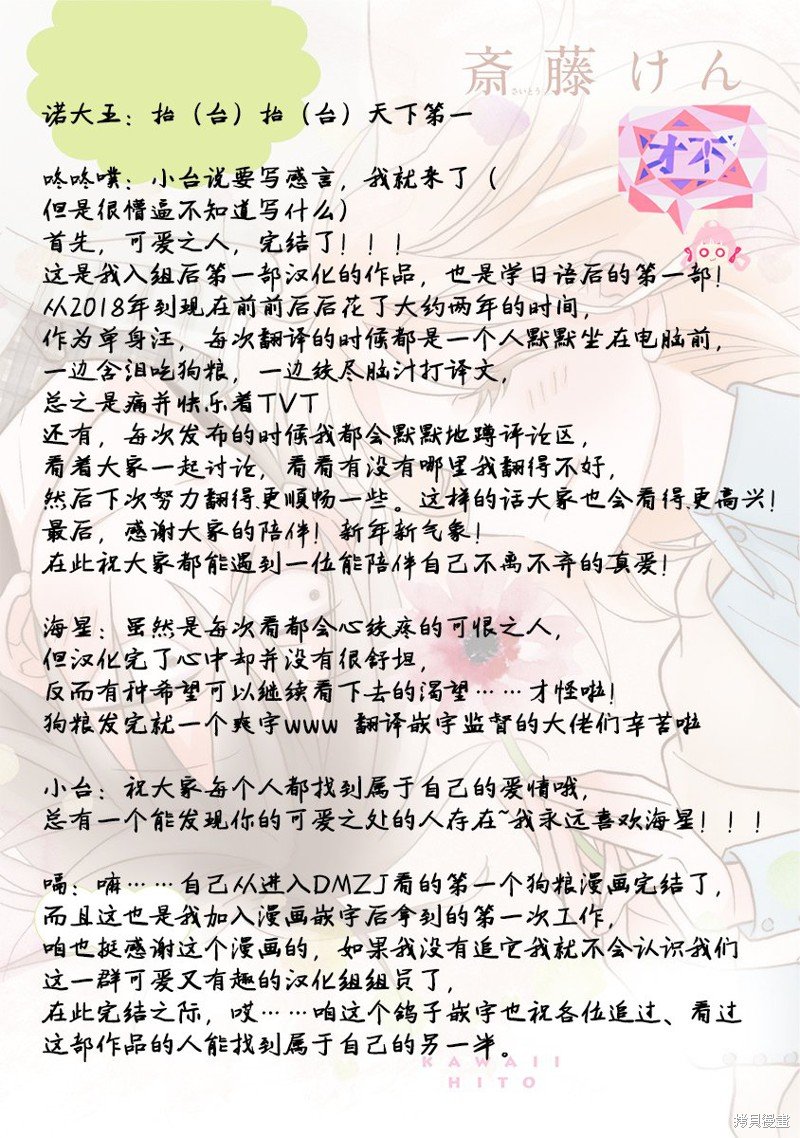 斎藤けん
さいとう
才不
诺大王：抬（台）抬（台）天下第一
咚咚噗：小台说要写感言，我就来了（
但是很懵逼不知道写什么）
首先，可爱之人，完结了！！！
这是我入组后第一部汉化的作品，也是学日语后的第一部！
从2018年到现在前前后后花了大约两年的时间，
作为单身汪，每次翻译的时候都是一个人默默坐在电脑前，
一边含泪吃狗粮，一边绞尽脑汁打译文，
总之是痛并快乐着TVT
还有，每次发布的时候我都会默默地蹲评论区，
看着大家一起讨论，看看有没有哪里我翻得不好，
然后下次努力翻得更顺畅一些。这样的话大家也会看得更高兴！
最后，感谢大家的陪伴！新年新气象！
在此祝大家都能遇到一位能陪伴自己不离不弃的真爱！
海星：虽然是每次看都会心绞疼的可恨之人，
但汉化完了心中却并没有很舒坦，
反而有种希望可以继续看下去的渴望……才怪啦！
狗粮发完就一个爽字www 翻译嵌字监督的大佬们辛苦啦
小台：祝大家每个人都找到属于自己的爱情哦，
总有一个能发现你的可爱之处的人存在~我永远喜欢海星！！！
嗝：嘛……自己从进入DMZJ看的第一个狗粮漫画完结了，
而且这也是我加入漫画嵌字后拿到的第一次工作，
咱也挺感谢这个漫画的，如果我没有追它我就不会认识我们
这一群可爱又有趣的汉化组组员了，
在此完结之际，哎……咱这个鸽子嵌字也祝各位追过、看过
这部作品的人能找到属于自己的另一半。
KAWAII
HITO
拷貝漫畫